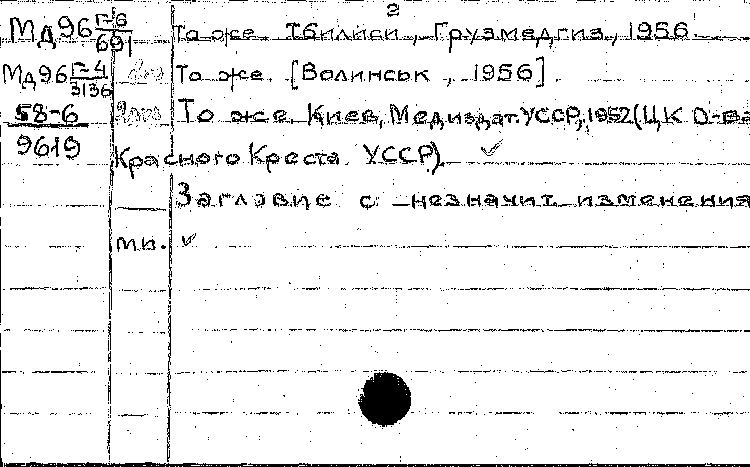 2
Мд96 Г-6/691 То же. Тбилиси, Грузмедгиз, 1956.
Мд96 Г-4/3136 То же. [Волинськ, 1956].
58-6/9619 То же. Киев, Медиздат УССР, 1952 (ЦК О-ва
Красного Креста УССР).
Заглавие с незначит. изменения
м.п.